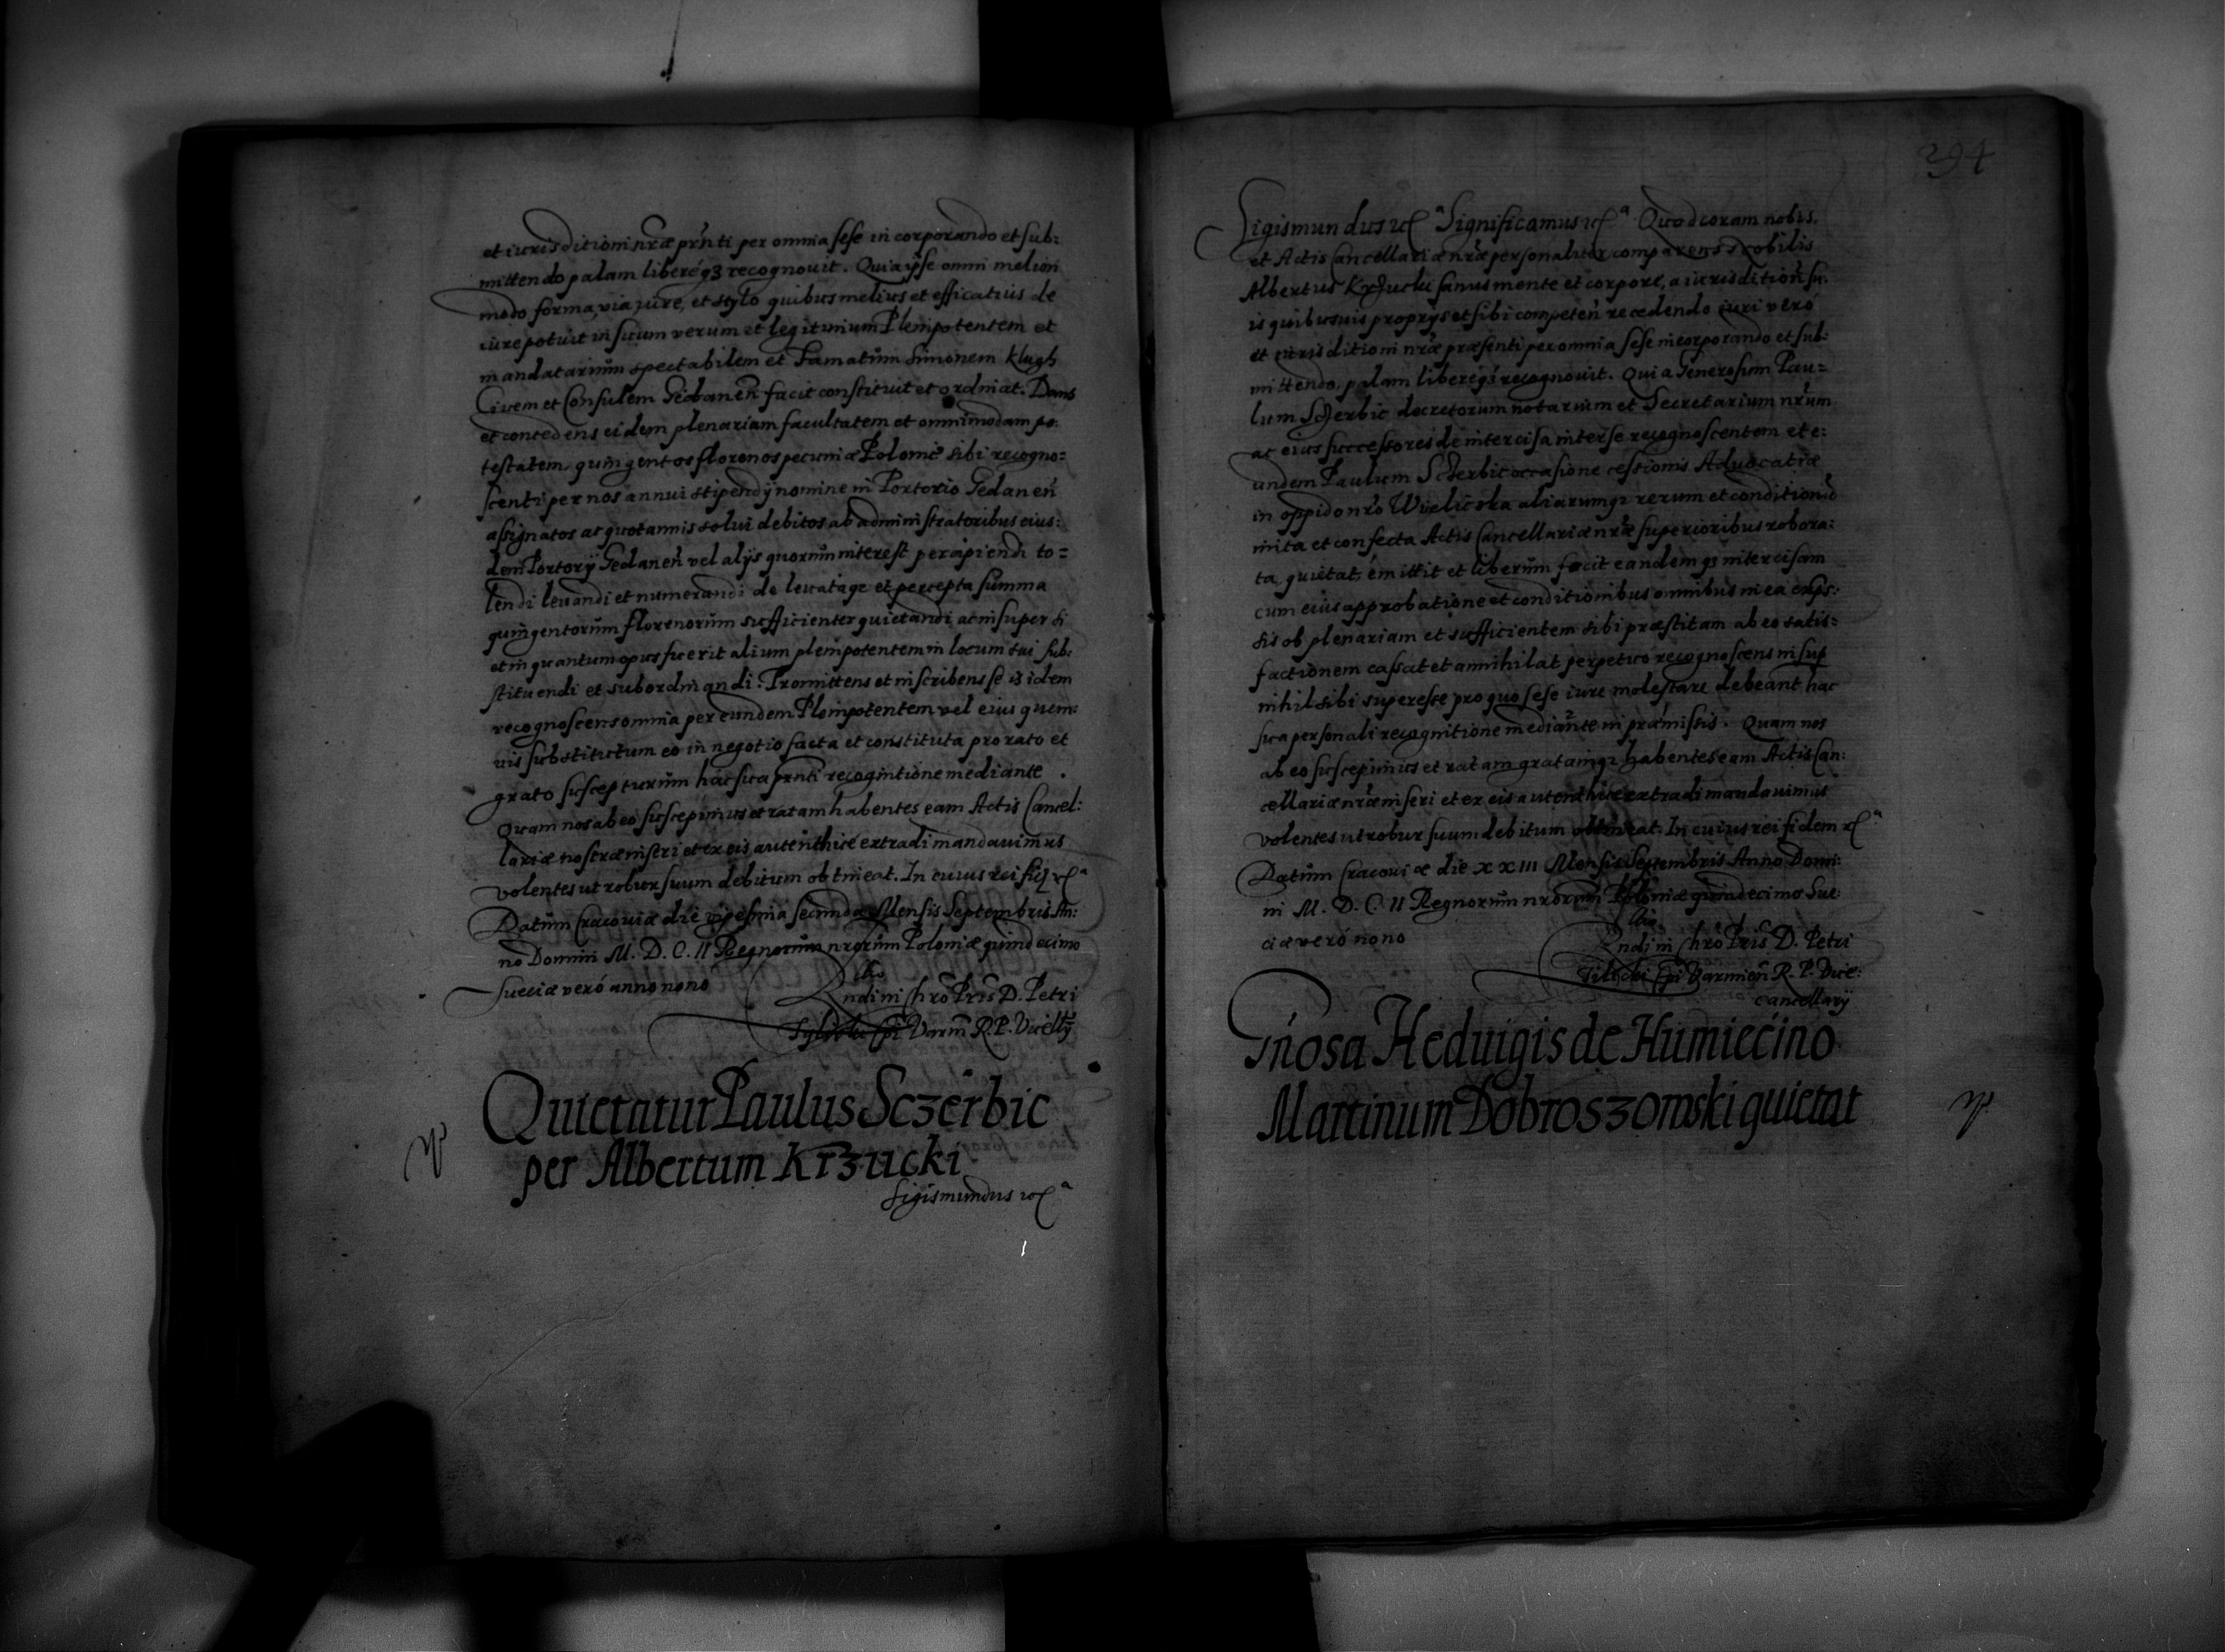 et iurisditioni nrae prnti per omnia sese incorporando et sub:
mittendo palam libereq3 recognovit. Quia ipse omni meliori
modo forma, via, iure, et stylo quibus melius et efficatius de
iure potuit in suum verum et legitimum Plenipotentem et
mandatarium spectabilem et Famatum Simonem Klugh
Civem et Consulem Gedanen facit constituit et ordinat. Dans
et concedens eidem plenariam facultatem et omnimodam po:
testatem, quingentos florenos pecuniae Polonic sibi recogno=
scenti per nos annui stipendÿ nomine in Portorio Gedanen
assignatos ac quotannis solvi debitos ab administratoribus eius:
dem Portorÿ Gedanen vel alÿs quorum interest percipiendi to=
lendi levandi et numerandi de levataqe et percepta summa
quingentorum florenorum sufficienter quietandi ac insuper si
et in quantum opus fuerit alium plenipotentem in locum sui sub:
stituendi et subordinandi. Promittens et inscribens se is idem
recognoscens omnia per eundem Plenipotentem vel eius quem:
vis substitutum eo in negotio facta et constituta pro rato et
grato suscepturum hac sua prnti recognitione mediante.
Quam nos ab eo suscepimus et ratam habentes eam Actis Cancel:
lariae nostrae inseri et ex eis autenthice extradi mandavimus
volentes ut robur suum debitum obtineat. In cuius rei
Datum Cracoviae die vigesima secunda Mensis Septembris An:
no Domini M. D. C. II Regnorum nrorum Poloniae quindecimo
Sueciae vero anno nono
Rndi in Chro Pris D. Petri
Tylicki Epi Varm R. P. Vicellÿ
Quietatur Paulus Sczerbic
per Albertum Krzucki
Sigismundus
294
Sigismundus Significamus Quod coram nobis.
et Actis Cancellariae nrae personaliter comparens Nobilis
Albertus Krzucki sanus mente et corpore, a iurisdition su:
is quibusvis proprÿs et sibi competen recedendo iuri vero
et iurisditioni nrae praesenti per omnia sese incorporando et sub:
mittendo, palam libereq3 recognovit. Quia Generosum Pau=
lum Sczerbic decretorum notarium et Secretarium nrum
ac eius successores de intercisa inter se recognoscentem et e:
undem Paulum Sczerbic occasione cessionis Advocatiae
in oppido nro Wieliczka aliarumq3 rerum et condition
inita et confecta Actis Cancellariae nrae superioribus robora:
ta, quietat, emittit et liberum facit eandemq3 intercisam
cum eius approbatione et conditionibus omnibus in ea exps:
sis ob plenariam et sufficientem sibi praestitam ab eo satis=
factionem cassat et annihilat perpetuo recognoscens insup
nihil sibi superesse pro quo sese iure molestare debeant hac
sua personali recognitione mediante in praemissis. Quam nos
ab eo suscepimus et ratam gratamq3 habentes eam Actis Can:
cellariae nrae inseri et ex eis autenthice extradi mandavimus
volentes ut robur suum debitum obtineat. In cuius rei fidem
Datum Cracoviae die XXIII Mensis Septembris Anno Domi:
ni M. D. C. II Regnorum nrorum Poloniae quindecimo Sue:
ciae vero nono
Rndi in Chro Pris D. Petri
Tilicki Epi Varmien R. P. Vice:
cancellarÿ
Gnosa Heduigis de Humiecino
Martinum Dobroszowski quietat